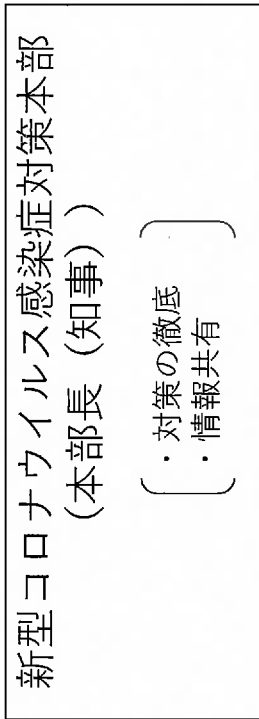 新型コロナウイルス感染症対策本部
(本部長（知事）)
・対策の徹底
・情報共有